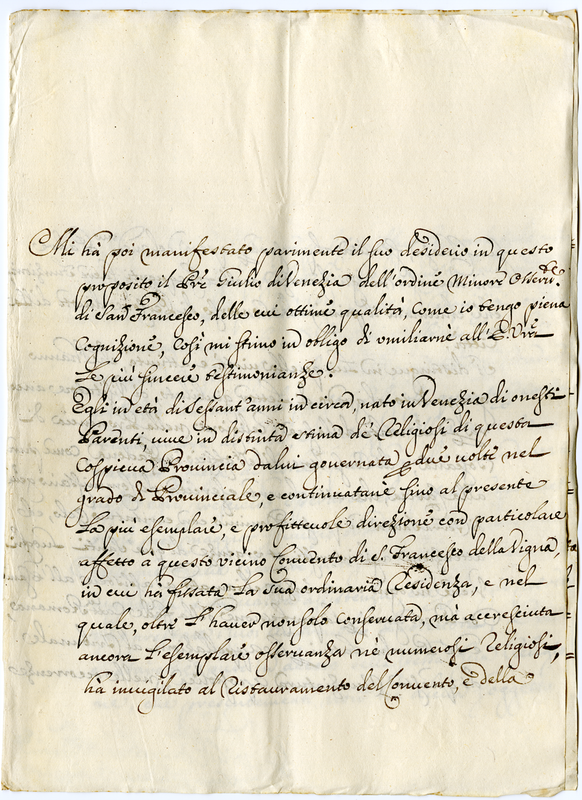 Mi hà poi manifestato parimente il suo desiderio in questo
proposito il Pre Giulio di Venezia dell'ordine Minore Osserte
di San Francesco, delle cui ottime qualità, come io tengo piena
Cognizione, così mi stimo in obligo di umiliarne all'E.E. Vre
le più sincere testimonianze.
Egli in età di sessant'anni in circa, nato in Venezia di onesti
Parenti, vive in distinta stima de Religiosi di questa
Cospicua Provincia da lui governata p due volte nel
grado di Provinciale, e continuatane sino al presente
la più esemplare, e profittevole direzione con particolare
affetto à questo vicino Convento di S. Francesco della Vigna,
in cui hà fissata la sua ordinaria Residenza, e nel
quale, oltre l'haver non solo conservata, mà accresciuta
ancora l'esemplare osservanza nè numerosi Religiosi,
hà invigilato al Ristauramento del Convento, e della